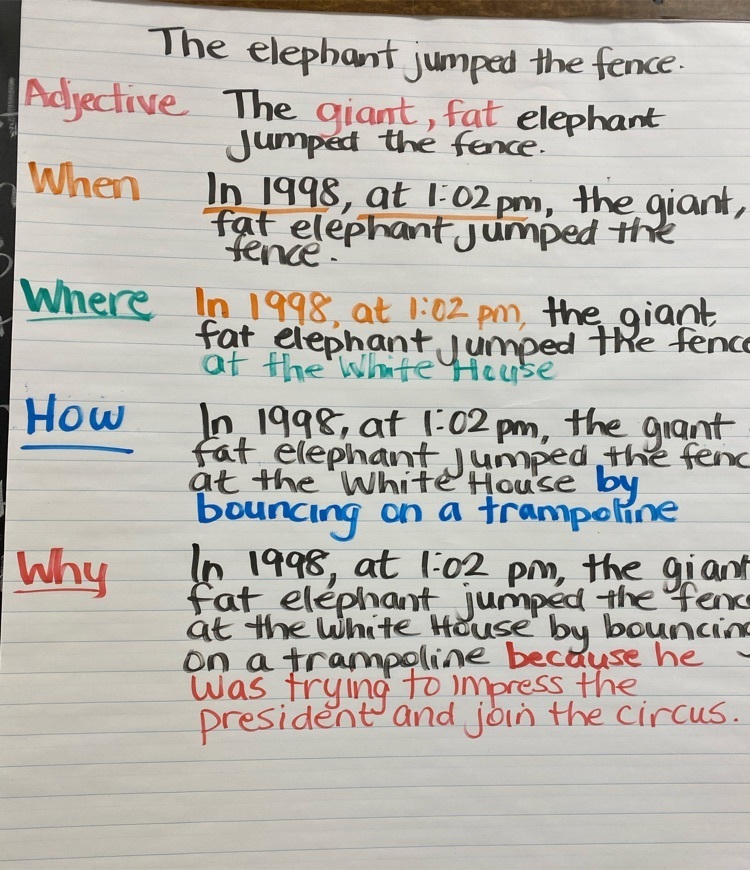 The elephant jumped the fence.
Adjective The giant, fat elephant
jumped the fence.
When In 1998, at 1:02 pm, the giant,
fat elephant jumped the
fence.
Where In 1998, at 1:02 pm, the giant,
fat elephant jumped the fenc
at the White House
How In 1998, at 1:02 pm, the giant
fat elephant jumped the fenc
at the White House by
bouncing on a trampoline
Why In 1998, at 1:02 pm, the giant
fat elephant jumped the fenc
at the White House by bouncing
on a trampoline because he
was trying to impress the
president and join the circus.